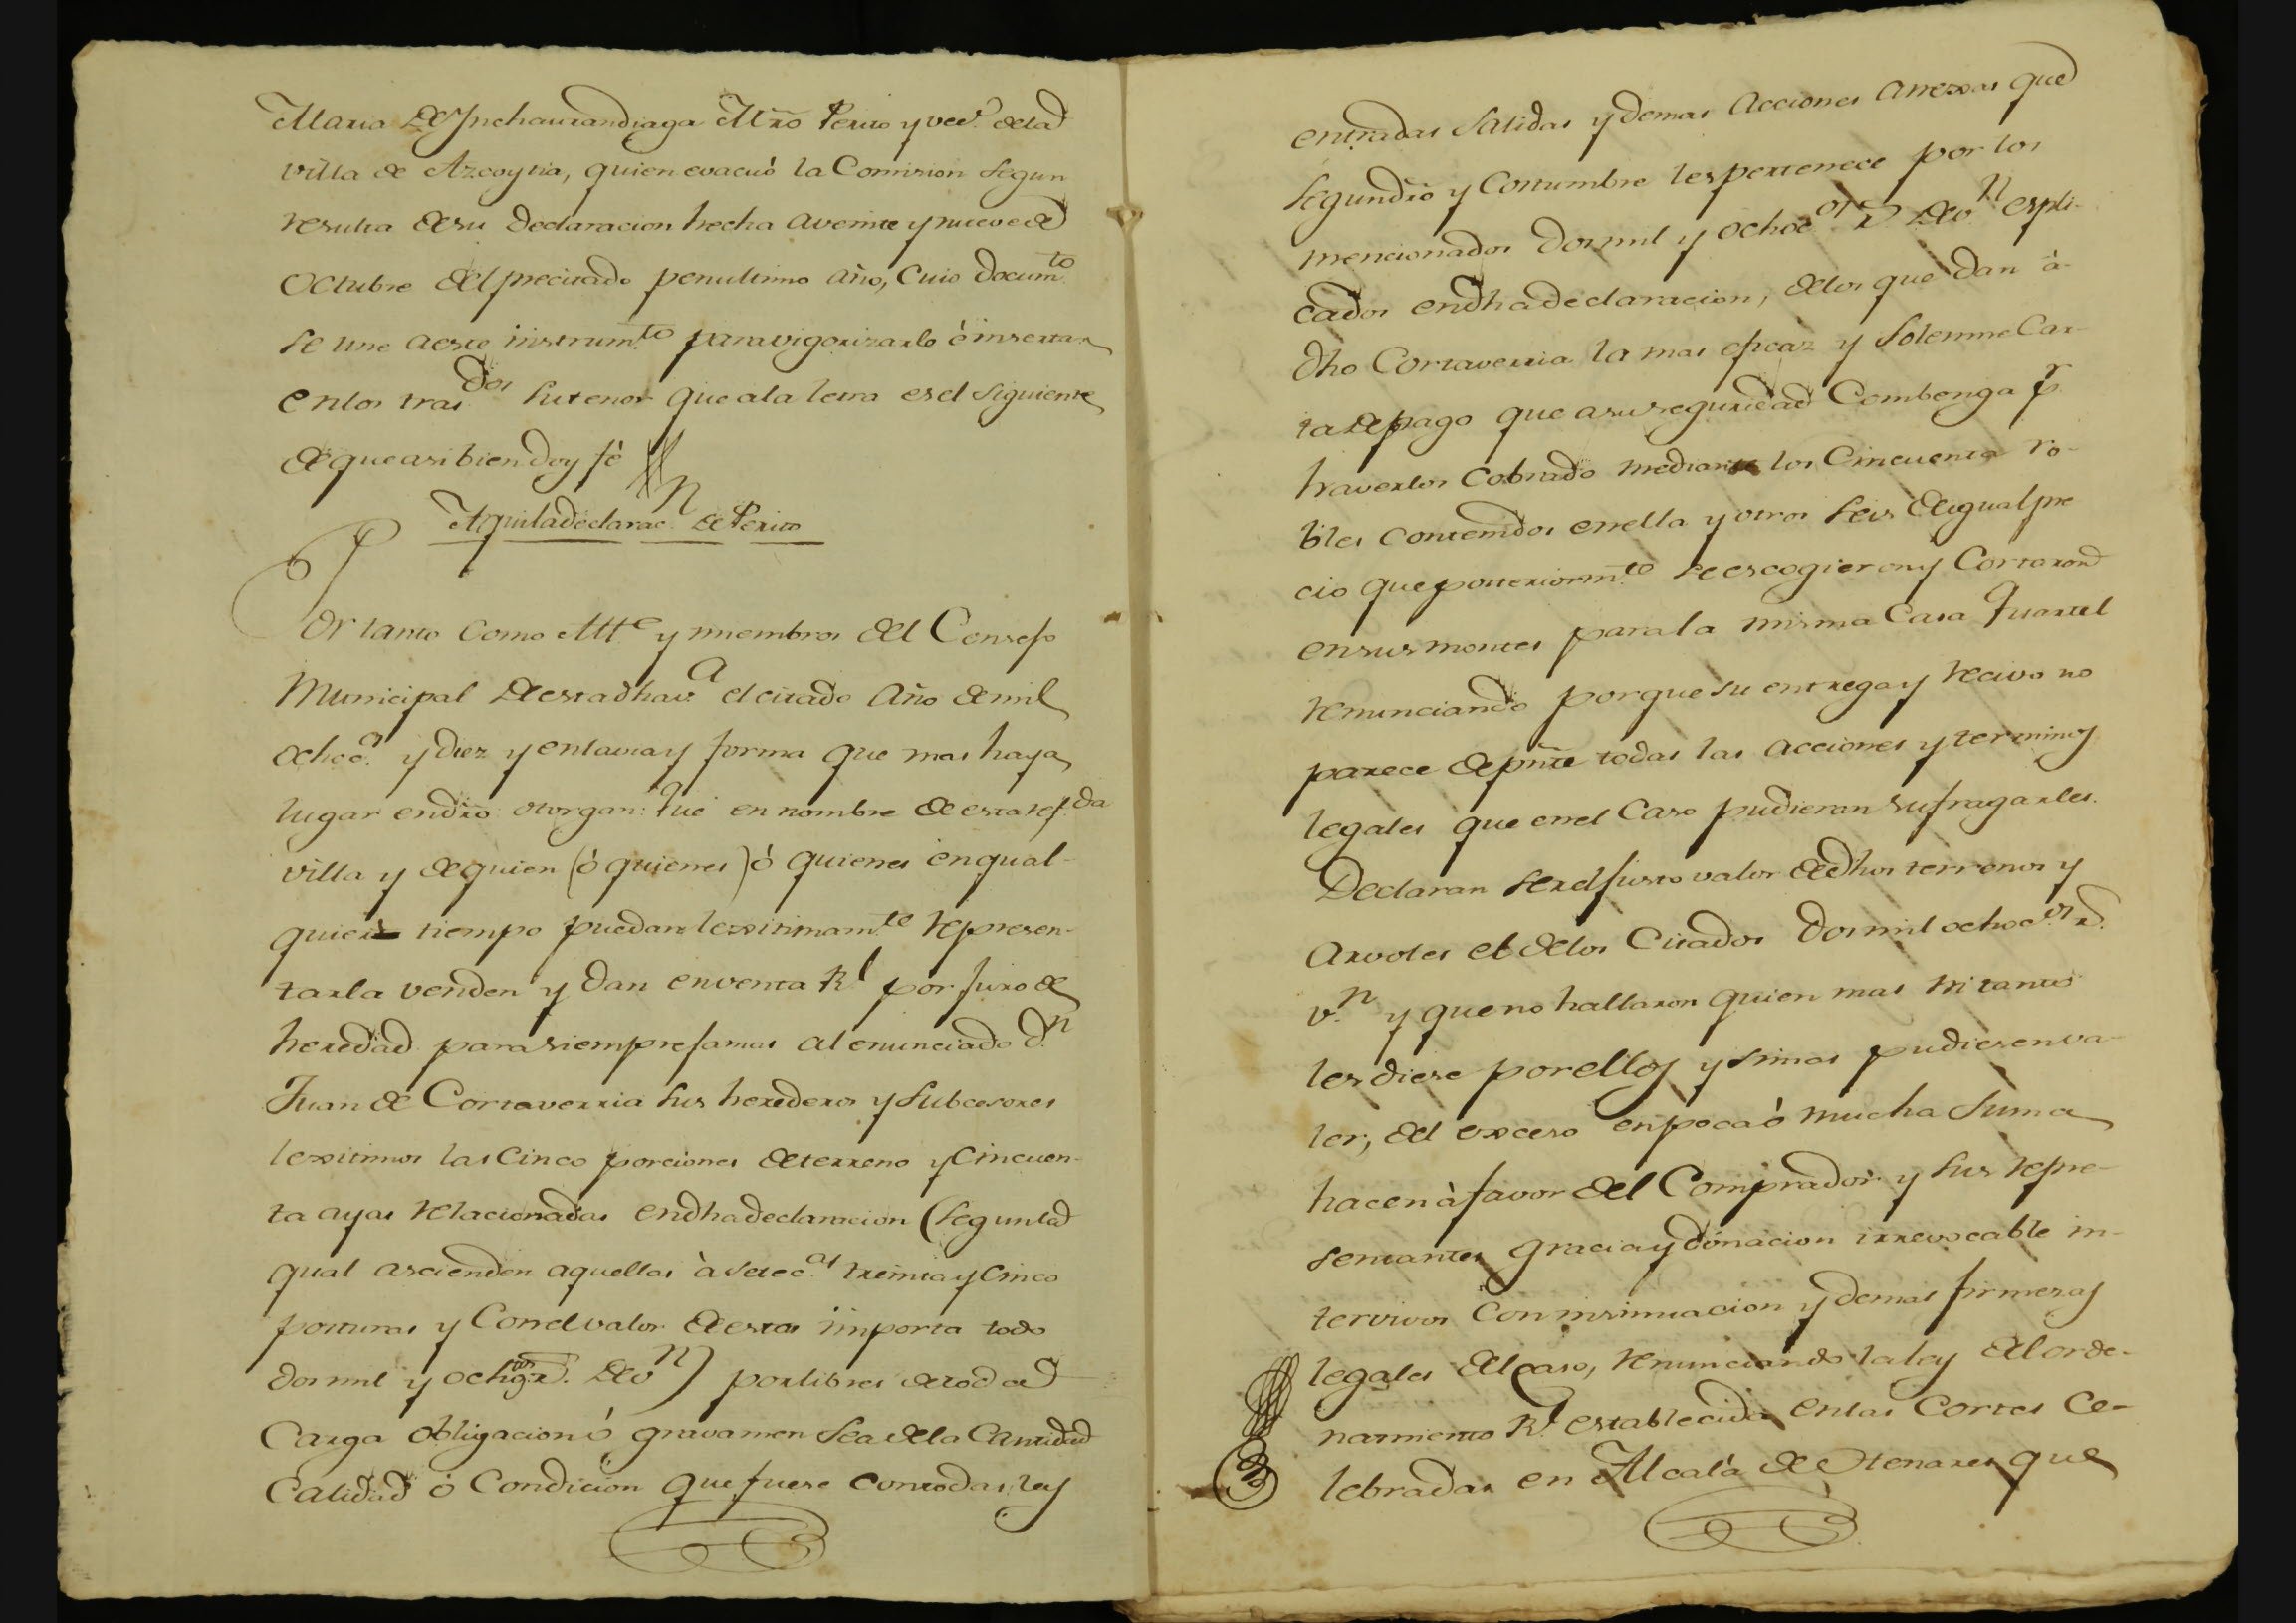 Maria de Ynchaurandiaga Mrõ Perito y vecº. de la
villa de Azcoytia, quien evacuó la Comision segun
resulta de su declaracion hecha a veinte y nueve de
Octubre del precitado penultimo año, cuio docum.to
se une a este instrum.to para vigorizarlo è insertar
en los tras.dos su tenor que a la letra es el siguiente
de que asi bien doy fè
Aqui la declarac.n de Perito
Por tanto como Alt.e y miembros del Consejo
Municipal de esta dha v.a el citado año de mil
ochoc.s y diez y en la via y forma que mas haya
lugar en drõ otorgan: Que en nombre de esta ref.da
villa y de quien (ò quienes) ò quienes en qual-
quier tiempo puedan lexitimam.te represen-
tarla venden y dan en venta R.l por juro de
heredad para siempre jamas al enunciado d.n
Juan de Cortaverria sus herederos y subcesores
lexitimos las cinco porciones de terreno y cincuen-
ta ayas relacionadas en dha declaracion (segun la
qual ascienden aquellas à setec.as treinta y cinco
posturas y con el valor de estas importa todo
dos mil y ochoc.tos r.s de v.n) por libres de toda
Carga obligacion ó gravamen sea de la Cantidad
Calidad ó Condicion que fuere con todas sus
entradas salidas y demas acciones annexas que
segun drõ y Costumbre les pertenece por los
mencionados dos mil y ochoc.os r.s de v.n espli-
cados en dha declaracion, de los que dan à
dho Cortaverria la mas eficaz y solemne Car-
ta de pago que a su seguridad Combenga p.r
haverlos cobrado mediante los Cincuenta ro-
bles contenidos en ella y otros seis de igual pre
cio que posteriorm.te se escogieron y Cortaron
en sus montes para la misma Casa Quartel
renunciando porque su entrega y recivo no
parece de pñte todas las acciones y terminos
legales que en el Caso pudieran sufragarles.
Declaran ser el justo valor de dhos terrenos y
arvoles el de los Citados dos mil ochoc.os r.s
v.n y que no hallaron quien mas ni tanto
les diese por ellos y si mas pudiesen va-
ler, del exceso en poca ò mucha suma
hacen à favor del Comprador y sus repre-
sentantes gracia y donacion irrevocable in-
tervivos con insinuacion y demas firmezas
legales del caso, renunciando la ley del orde-
namiento R.l establecida en las Cortes Ce-
lebradas en Alcalá de Henares que